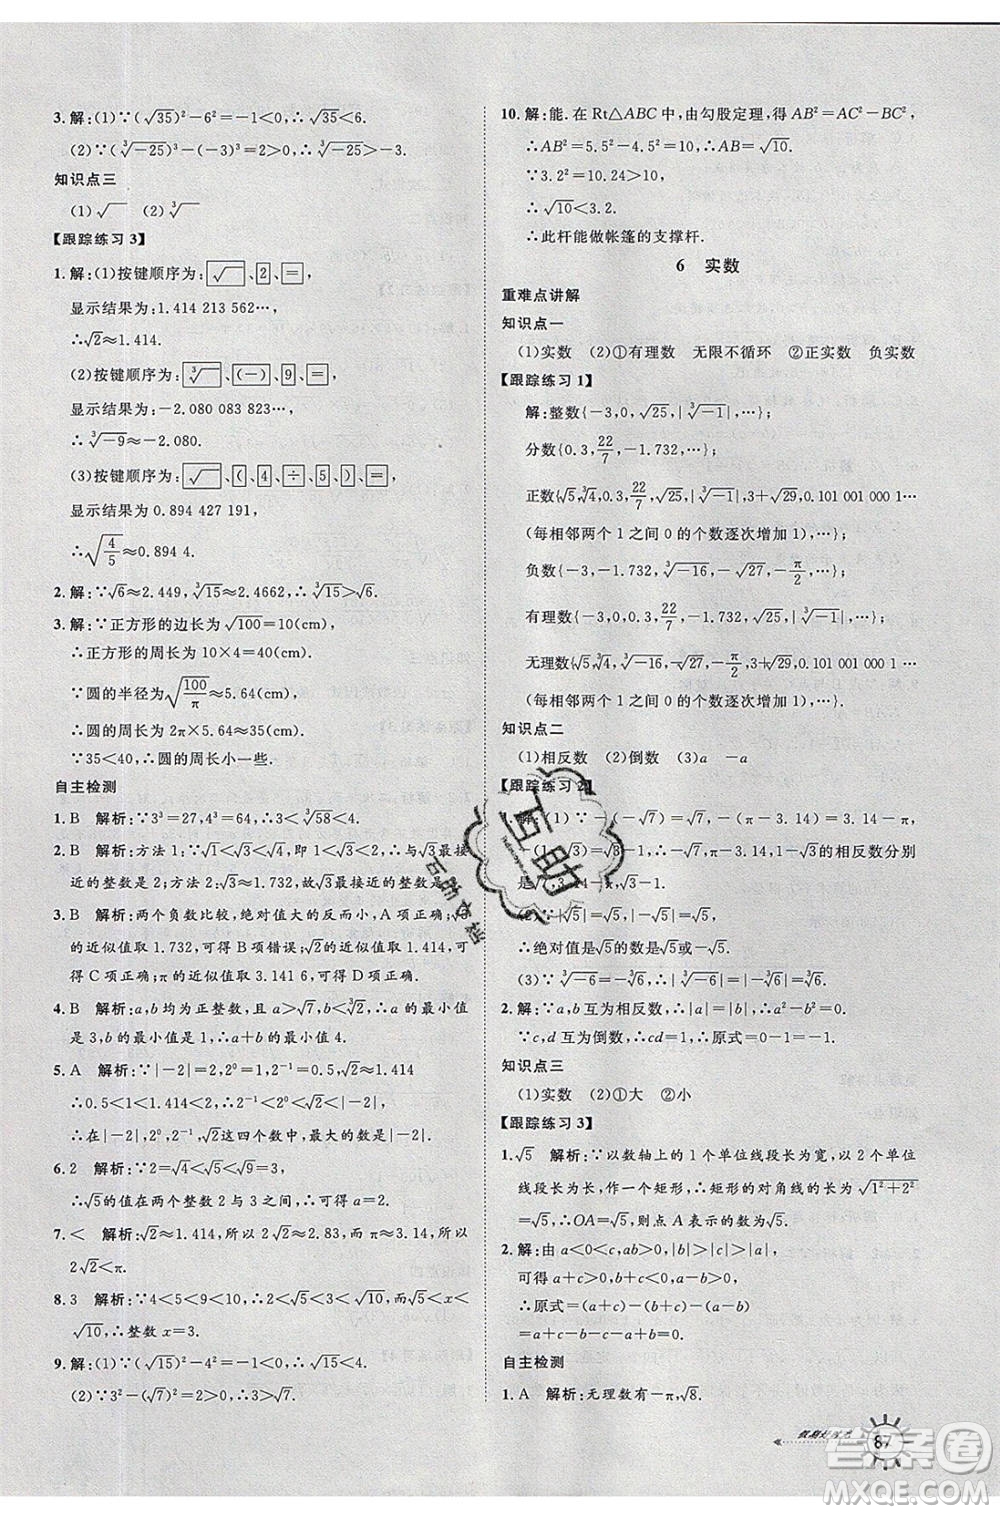 3. 解:(1)∵(√35)²-6²=-1<0,∴√35<6.
(2)∵(∛-25)³-(-3)³=2>0,∴∛-25>-3.
知识点三
(1)√ (2)∛
【跟踪练习3】
1. 解:(1)按键顺序为:√、2、=,
显示结果为:1.414 213 562…,
∴√2≈1.414.
(2)按键顺序为:∛、(-)、9、=,
显示结果为:-2.080 083 823…,
∴∛-9≈-2.080.
(3)按键顺序为:√、(、4、÷、5、)、=,
显示结果为:0.894 427 191,
∴√(4/5)≈0.894 4.
2. 解:∵√6≈2.449,∛15≈2.4662,∴∛15>√6.
3. 解:∵正方形的边长为√100=10(cm),
∴正方形的周长为10×4=40(cm).
∵圆的半径为√(100/π)≈5.64(cm),
∴圆的周长为2π×5.64≈35(cm).
∵35<40,∴圆的周长小一些.
自主检测
1. B 解析:∵3³=27,4³=64,∴3<∛58<4.
2. B 解析:方法1:∵√1<√3<√4,即1<√3<2,∴与√3最接
近的整数是2;方法2:∵√3≈1.732,∴与√3最接近的整数是2.
3. B 解析:两个负数比较,绝对值大的反而小,A项正确;√3
的近似值取1.732,可得B项错误;√2的近似值取1.414,可
得C项正确;π的近似值取3.141 6,可得D项正确.
4. B 解析:a,b均为正整数,且a>√7,b<∛2,∴a的最小值
是3,b的最小值是1,∴a+b的最小值4.
5. A 解析:∵|-2|=2,2⁰=1,2⁻¹=0.5,√2≈1.414,
∴0.5<1<√2<2,∴2⁻¹<2⁰<√2<|-2|,
∴在|-2|,2⁰,2⁻¹,√2这四个数中,最大的数是|-2|.
6. 2 解析:∵2=√4<√5<√9=3,
∴√5的值在两个整数2与3之间,∴可得a=2.
7. < 解析:√2≈1.414,所以2√2≈2.818,π≈3.14,所以
2√2<π.
8. 3 解析:∵4<5<9<10<16,∴2<√5<3<√10<4,又√5<x<
√10,∴整数x=3.
9. 解:(1)∵(√15)²-4²=-1<0,∴√15<4.
(2)∵3²-(√7)²=2>0,∴3>√7.
10. 解:能. 在Rt△ABC中,由勾股定理,得AB²=AC²-BC²,
∴AB²=5.5²-4.5²=10,∴AB=√10.
∵3.2²=10.24>10,
∴√10<3.2.
∴此杆能做帐篷的支撑杆.
6 实数
重难点讲解
知识点一
(1)实数 (2)①有理数 无限不循环 ②正实数 负实数
【跟踪练习1】
解:整数{-3,0,√25,|∛-1|,…};
分数{0.3,22/7,-1.732,…};
正数{√5,∛4,0.3,22/7,√25,|∛-1|,3+√29,0.101 001 000 1…
(每相邻两个1之间0的个数逐次增加1),…};
负数{-3,-1.732,∛-16,-√27,-π/2,…};
有理数{-3,0,0.3,22/7,-1.732,√25,|∛-1|,…};
无理数{√5,∛4,∛-16,-√27,-π/2,3+√29,0.101 001 000 1…
(每相邻两个1之间0的个数逐次增加1),…}.
知识点二
(1)相反数 (2)倒数 (3)a -a
【跟踪练习2】
1. 解:(1)∵-(-√7)=√7,-(π-3.14)=3.14-π,
-(1-√3)=√3-1,∴-√7,π-3.14,1-√3的相反数分别
是√7,3.14-π,√3-1.
(2)∵|√5|=√5,|-√5|=√5,
∴绝对值是√5的数是√5或-√5.
(3)∵∛-6=-∛6,∴|∛-6|=|-∛6|=∛6.
2. 解:∵a,b互为相反数,∴|a|-|b|=0.
∵c,d互为倒数,∴cd=1,∴原式=0-1=-1.
知识点三
(1)实数 (2)①大 ②小
【跟踪练习3】
1. √5 解析:∵以数轴上的1个单位线段长为宽,以2个单位
线段长为长,作一个矩形,∴矩形的对角线的长度=√(1²+2²)
=√5,∴OA=√5,则点A表示的数为√5.
2. 解:由a<0,b<0,c>0,|b|>|a|>|c|,
可得a+c<0,b+c<0,a-b>0,
∴原式=-(a+c)-(b+c)-(a-b)
=-a-c+b+c-a+b=-2a+2b.
自主检测
1. A 解析:无理数有-π,√8.
87
互助
答案圈
MXQE.COM